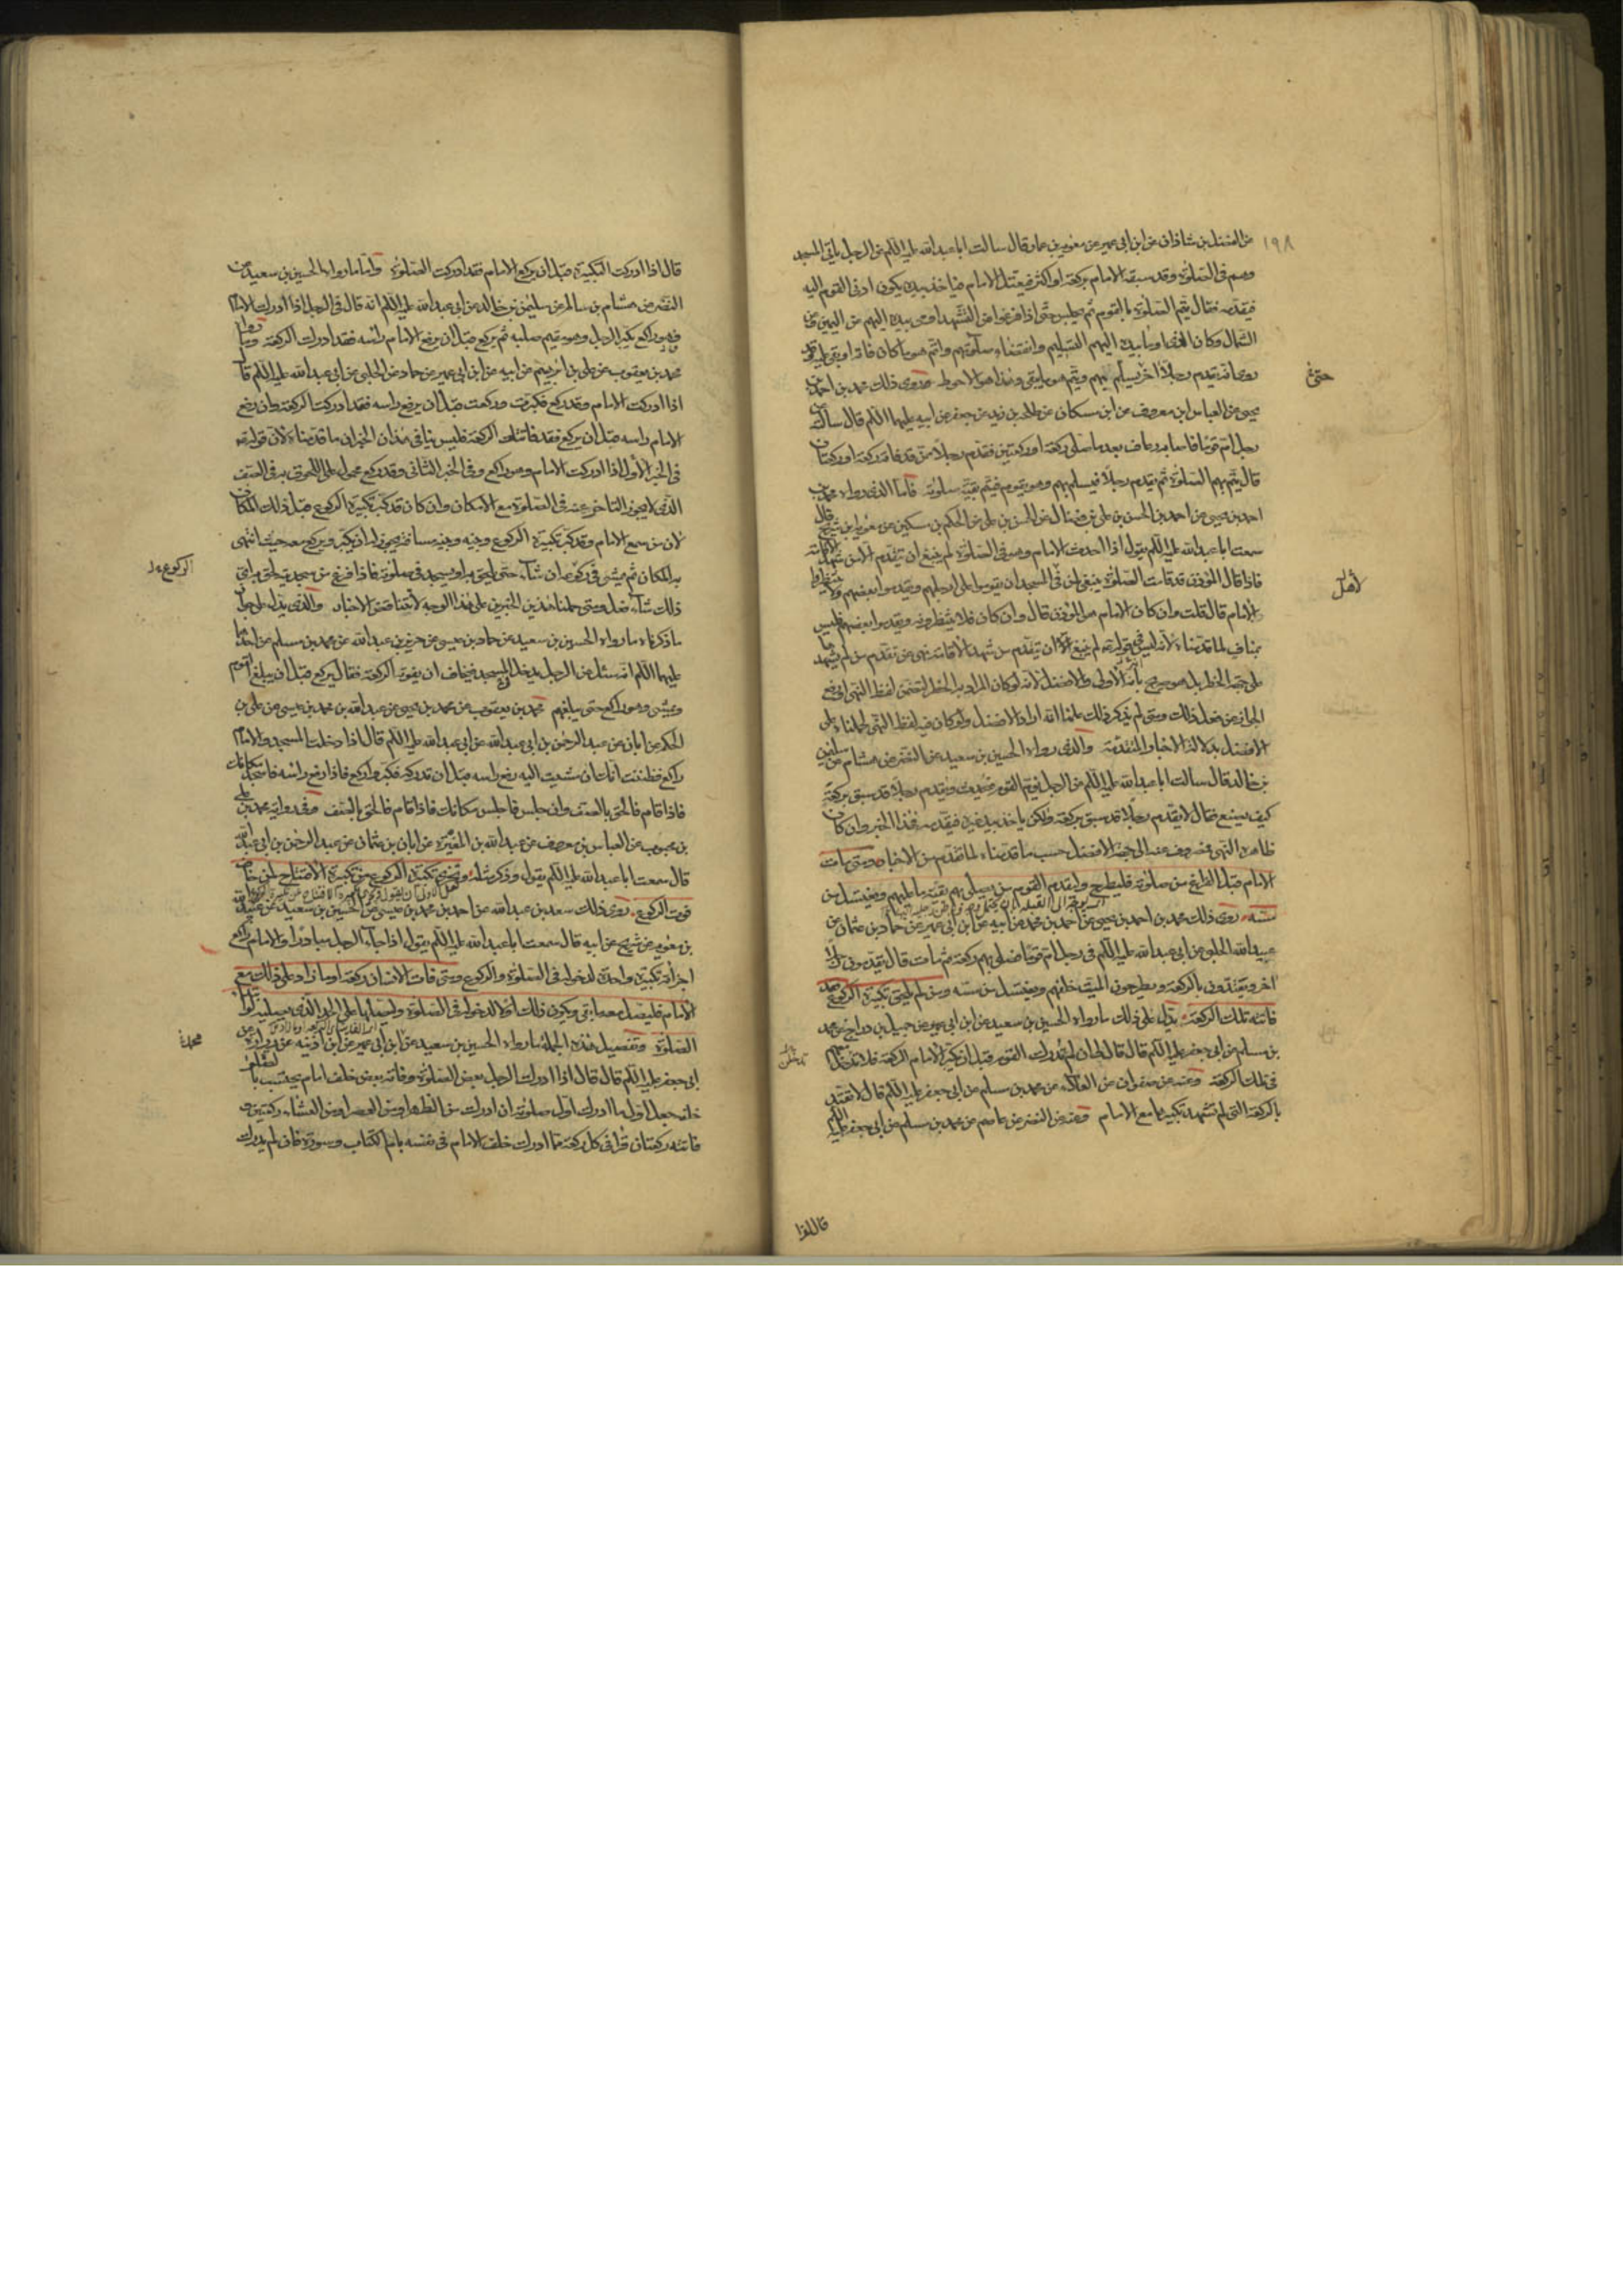 ١٩٨
عن الفضل بن شاذان عن ابن ابى عمير عن معوية بن عمار قال سالت ابا عبد الله عليه السلم عن الرجل ياتى المسجد
وهم فى الصلوة وقد سبقه الامام بركعة او اكثر فيعتل الامام فياخذ بيده ويكون ادنى القوم اليه
فيقدمه فقال يتم الصلوة بالقوم ثم يجلس حتى اذا فرغوا من التشهد اومى بيده اليهم عن اليمين وعن
الشمال وكان الذى اومأ بيده اليهم التسليم وانقضاء صلوتهم واتم هو ما كان فاته او بقى عليه وقد
روى انه يقدم رجلا اخر يسلم بهم ويتم هو ما بقى وهذا هو الاحوط روى ذلك محمد بن احمد بن
حتى
يحيى عن العباس بن معروف عن ابن سكان عن طلحة بن زيد عن جعفر عن ابيه عليهما السلم قال سالته عن
رجل ام قوما فاصابه رعاف بعد ما صلى ركعة او ركعتين فقدم رجلا ممن قد فاته ركعة او ركعتان
قال يتم بهم الصلوة ثم يقدم رجلا فيسلم بهم وهو يقوم فيتم بقية صلوته فاما الذى رواه محمد بن
احمد بن يحيى عن احمد بن الحسن بن على بن فضال عن الحسن بن على عن الحكم بن سكين عن معوية بن شريح قال
سمعت ابا عبد الله عليه السلم يقول اذا احدث الامام وهو فى الصلوة لم ينبغ ان يتقدم الا من شهد الاقامة
فاذا قال المؤذن قد قامت الصلوة ينبغى لمن فى المسجد ان يقوموا على ارجلهم ويقدموا بعضهم ولا ينتظروا
لاهل
الامام قال قلت وان كان الامام هو المؤذن قال وان كان فلا ينتظرونه ويقدموا بعضهم فليس
بناف لما قدمناه لانه ليس فى قوله لم ينبغ ان يتقدم من شهد الاقامة نهى عن تقدم من لم يشهد
على جهة الحظر بل هو صريح بانه الاولى والافضل لانه لو كان المراد به الحظر لتضمن لفظ النهى
الجارى عن فعل ذلك ومتى لم يذكر ذلك علمنا انه اراد الافضل ولو كان فيه لفظ النهى لحملناه على
الافضل بدلالة الاخبار المتقدمة والذى رواه الحسين بن سعيد عن النضر عن هشام عن سليمن
بن خالد قال سالت ابا عبد الله عليه السلم عن الرجل يؤم القوم فيحدث ويقدم رجلا قد سبق بركعة
كيف يصنع فقال لا يقدم رجلا قد سبق بركعة ولكن ياخذ بيد غيره فيقدمه فهذا الخبر وان كان
ظاهره النهى فمصروف عنه الى جهة الافضل حسب ما قدمناه لما تقدم من الاخبار ومتى مات
الامام قبل الفراغ من صلوته فليطرح وليقدم القوم من يصلى بهم بقية ما عليهم ويغتسل من
مسه روى ذلك محمد بن احمد بن يحيى عن احمد بن محمد عن ابيه عن ابن ابى عمير عن حماد بن عثمان عن
عبيد الله الحلبى عن ابى عبد الله عليه السلم فى رجل ام قوما فصلى بهم ركعة ثم مات قال يقدمون رجلا
اخر ويعتدون بالركعة ويطرحون الميت خلفهم ويغتسل من مسه ومن لم يلحق تكبيرة الركوع فقد
فاتته تلك الركعة يدل على ذلك ما رواه الحسين بن سعيد عن ابن ابى عمير عن جميل بن دراج عن محمد
بن مسلم عن ابى جعفر عليه السلم قال قال لى ان لم تدرك القوم قبل ان يكبر الامام الركعة فلا تدخل معهم
فى تلك الركعة وعنه عن صفوان عن العلاء عن محمد بن مسلم عن ابى جعفر عليه السلم قال لا تعتد
بالركعة التى لم تشهد تكبيرها مع الامام وعنه عن النضر عن عاصم عن محمد بن مسلم عن ابى جعفر عليه السلم
قال اذا
قال اذا ادركت التكبيرة قبل ان يركع الامام فقد ادركت الصلوة واما ما رواه الحسين بن سعيد عن
النضر عن هشام بن سالم عن سليمن بن خالد عن ابى عبد الله عليه السلم انه قال فى الرجل اذا ادرك الامام
وهو راكع فكبر الرجل وهو مقيم صلبه ثم ركع قبل ان يرفع الامام راسه فقد ادرك الركعة وما رواه
محمد بن يعقوب عن على بن ابرهيم عن ابيه عن ابن ابى عمير عن حماد عن الحلبى عن ابى عبد الله عليه السلم قال
اذا ادركت الامام وقد ركع فكبرت وركعت قبل ان يرفع راسه فقد ادركت الركعة وان رفع
الامام راسه قبل ان يركع فقد فاتتك الركعة فليس ينافى هذان الخبران ما قدمناه لان قوله
فى الخبر الاول اذا ادركت الامام وهو راكع وفى الخبر الثانى وقد ركع محمول على اللحوق به فى الصف
الذى لا يجوز التاخر عنه فى الصلوة مع الامكان وان كان قد كبر تكبيرة الركوع قبل ذلك المكان
لان من سمع الامام وقد كبر تكبيرة الركوع وبينه وبينه مسافة يجوز له ان يكبر ويركع معه حيث انتهى
به المكان ثم يمشى فى ركوعه ان شاء حتى يلحق به او يسجد فى صلوته فاذا فرغ من سجدتيه لحق به اى
الركوع
ذلك شاء فعل ومتى حملنا هذين الخبرين على هذا الوجه لا تتناقض الاخبار والذى يدل على جواز
ما ذكرناه ما رواه الحسين بن سعيد عن حماد بن عيسى عن حريز بن عبد الله عن محمد بن مسلم عن احدهما
عليهما السلم انه سئل عن الرجل يدخل المسجد فيخاف ان يفوته الركعة فقال يركع قبل ان يبلغ القوم
ويمشى وهو راكع حتى يبلغهم محمد بن يعقوب عن محمد بن يحيى عن عبد الله بن محمد بن عيسى عن على بن
الحكم عن ابان عن عبد الرحمن بن ابى عبد الله عن ابى عبد الله عليه السلم قال اذا دخلت المسجد والامام
راكع فظننت انك ان مشيت اليه رفع راسه قبل ان تدركه فكبر واركع فاذا رفع راسه فاسجد مكانك
فاذا قام فالحق بالصف وان جلس فاجلس مكانك فاذا قام فالحق بالصف وفى رواية محمد بن على
بن محبوب عن العباس بن معروف عن عبد الله بن المغيرة عن ابان بن عثمان عن عبد الرحمن بن ابى عبد الله
قال سمعت ابا عبد الله عليه السلم يقول وذكر مثله وتجزى تكبيرة الركوع عن تكبيرة الافتتاح لمن خاف
فوت الركوع روى ذلك سعد بن عبد الله عن احمد بن محمد بن عيسى عن الحسين بن سعيد عن عبد الله
بن معوية عن شريح عن ابيه قال سمعت ابا عبد الله عليه السلم يقول اذا جاء الرجل مبادرا والامام راكع
اجزاته تكبيرة واحدة لدخوله فى الصلوة والركوع ومتى فات الانسان ركعة او ما زاد على ذلك مع
الامام فليصل معه ما بقى ويكون ذلك اولا لدخوله فى الصلوة
الصلوة وتفصيل هذه الجملة ما رواه الحسين بن سعيد عن ابن ابى عمير عن ابن اذينه عن زرارة عن
ابى جعفر عليه السلم قال قال اذا ادرك الرجل بعض الصلوة وفاته بعض خلف امام يحتسب بالصلوة
خلفه جعل اول ما ادرك اول صلوته ان ادرك من الظهر او من العصر او من العشاء ركعتين و
فاتته ركعتان قرا فى كل ركعة مما ادرك خلف الامام فى نفسه بام الكتاب وسورة فان لم يدرك